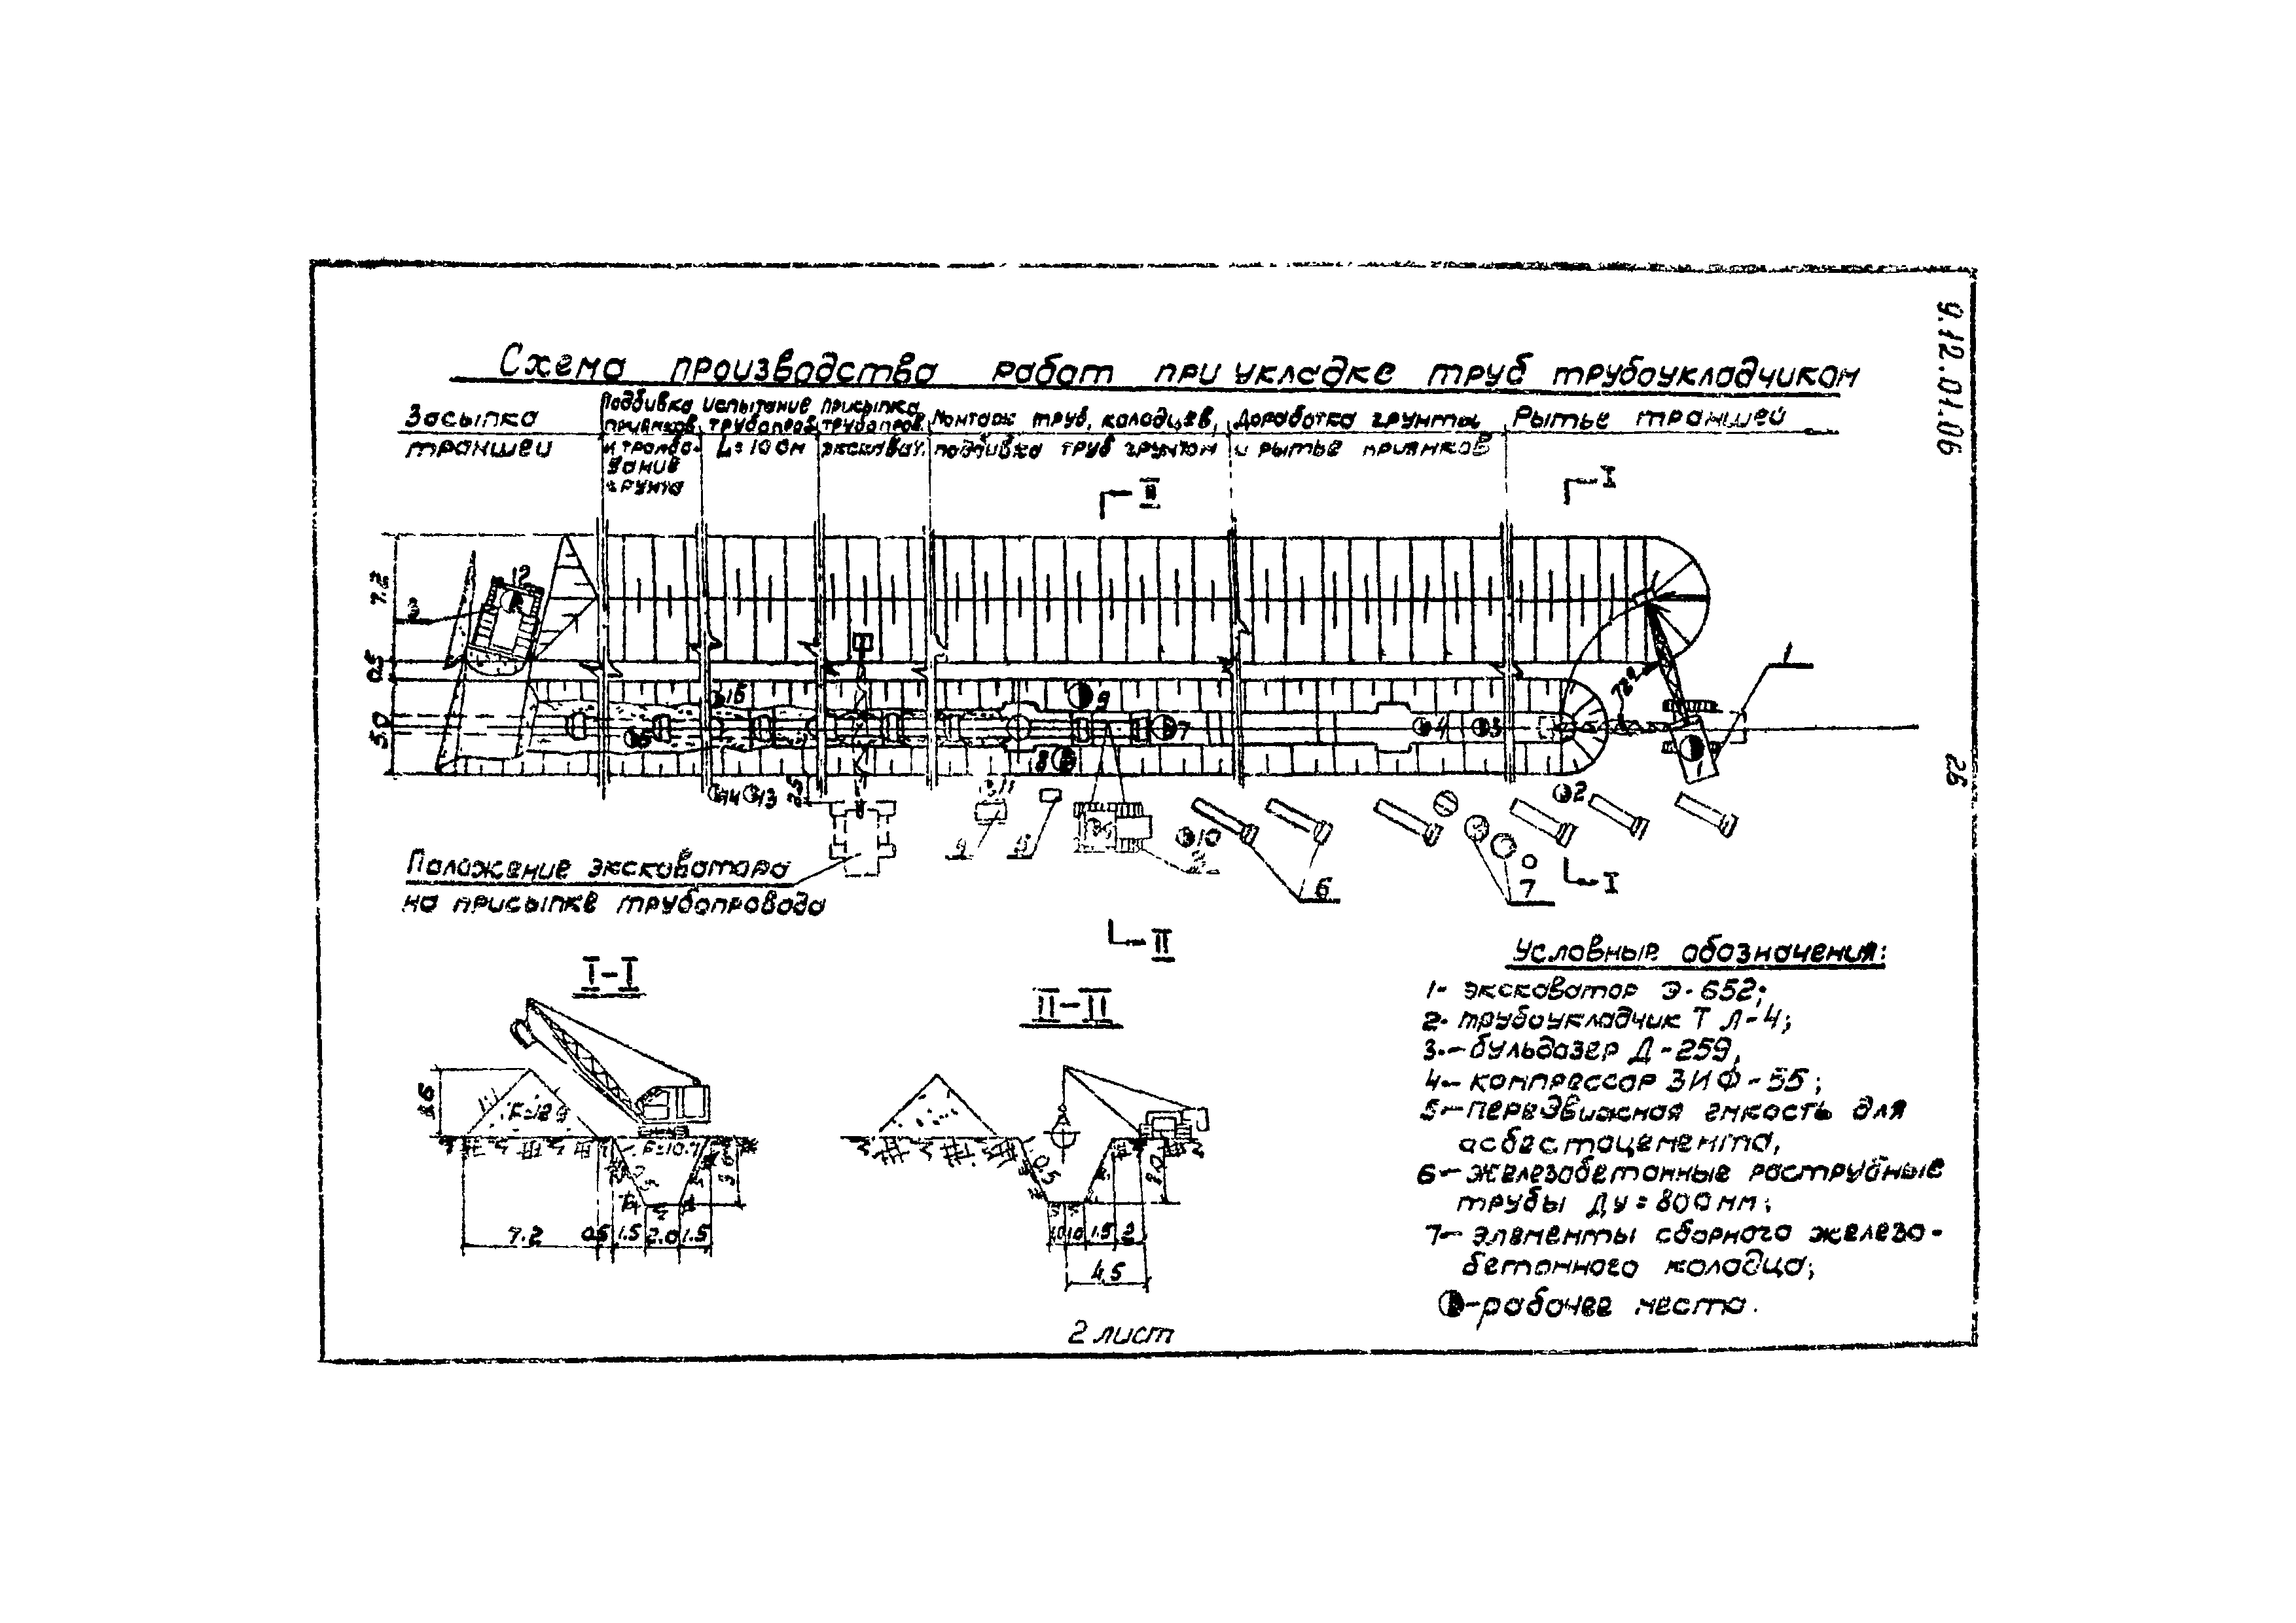 9.12.01.06
26
Схема производства работ при укладке труб трубоукладчиком
Засыпка
траншеи
Подбивка
приямков
и трамбо-
вание
грунта
испытание
трубопров.
L=100м
Присыпка
трубопров.
экскават.
Монтаж труб, колодцев,
подбивка труб грунтом
Доработка грунта
и рытье приямков
Рытье траншей
II
I
7.2
0.5
5.0
12
3
15
9
7
8
4
3
1
1
14
13
2.5
2
10
6
7
I
II
Положение экскаватора
на присыпке трубопровода
I-I
1:1
7.2
0.5
1.5
2.0
1.5
II-II
1.0
1.0
1.5
2
4.5
Условные обозначения:
1- экскаватор Э-652;
2- трубоукладчик ТЛ-4;
3.-бульдозер Д-259,
4-компрессор ЗИФ-55;
5-передвижная емкость для
асбестоцемента,
6-железобетонные раструбные
трубы Ду=800мм;
7-элементы сборного железо-
бетонного колодца;
-рабочее место.
2 лист